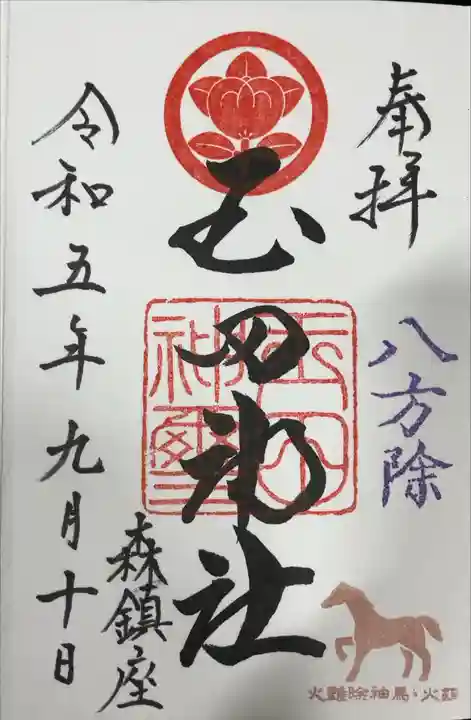 奉拝
八方除
玉田神社
森鎮座
令和五年九月十日
火難除神馬・火